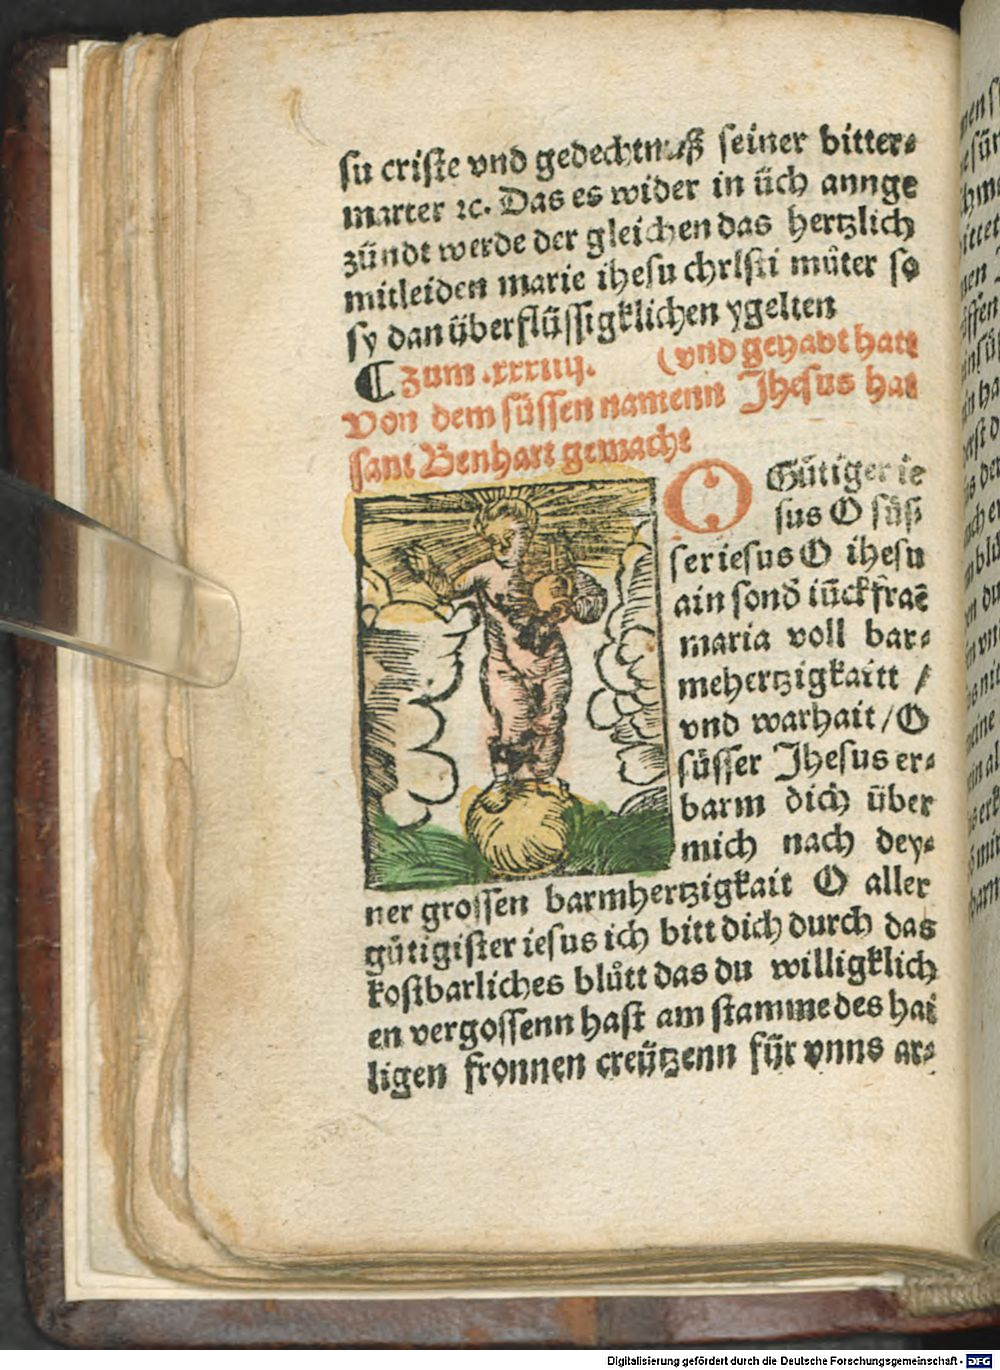 su criste vnd gedechtnuß seiner bitter⸗
marter ⁊c. Das es wider in üch annge
zündt werde der gleichen das hertzlich
mitleiden marie ihesu christi můter so
sy dan überflüssigklichen ygelten
(vnd gehabt hatt
¶ zum .xxxiiij.
Von dem süssen namenn Jhesus hat
sant Benhart gemacht
O Gütiger ie
sus O süß
ser iesus O ihesu
ain sond iückfraē
maria voll bar⸗
mehertzigkaitt /
vnd warhait / O
süsser Jhesus er⸗
barm dich über
mich nach dey⸗
ner grossen barmhertzigkait O aller
gütigister iesus ich bitt dich durch das
kostbarliches blůtt das du willigklich
en vergossenn hast am stamme des hai
ligen fronnen creützenn für vnns ar⸗
Digitalisierung gefördert durch die Deutsche Forschungsgemeinschaft - DFG